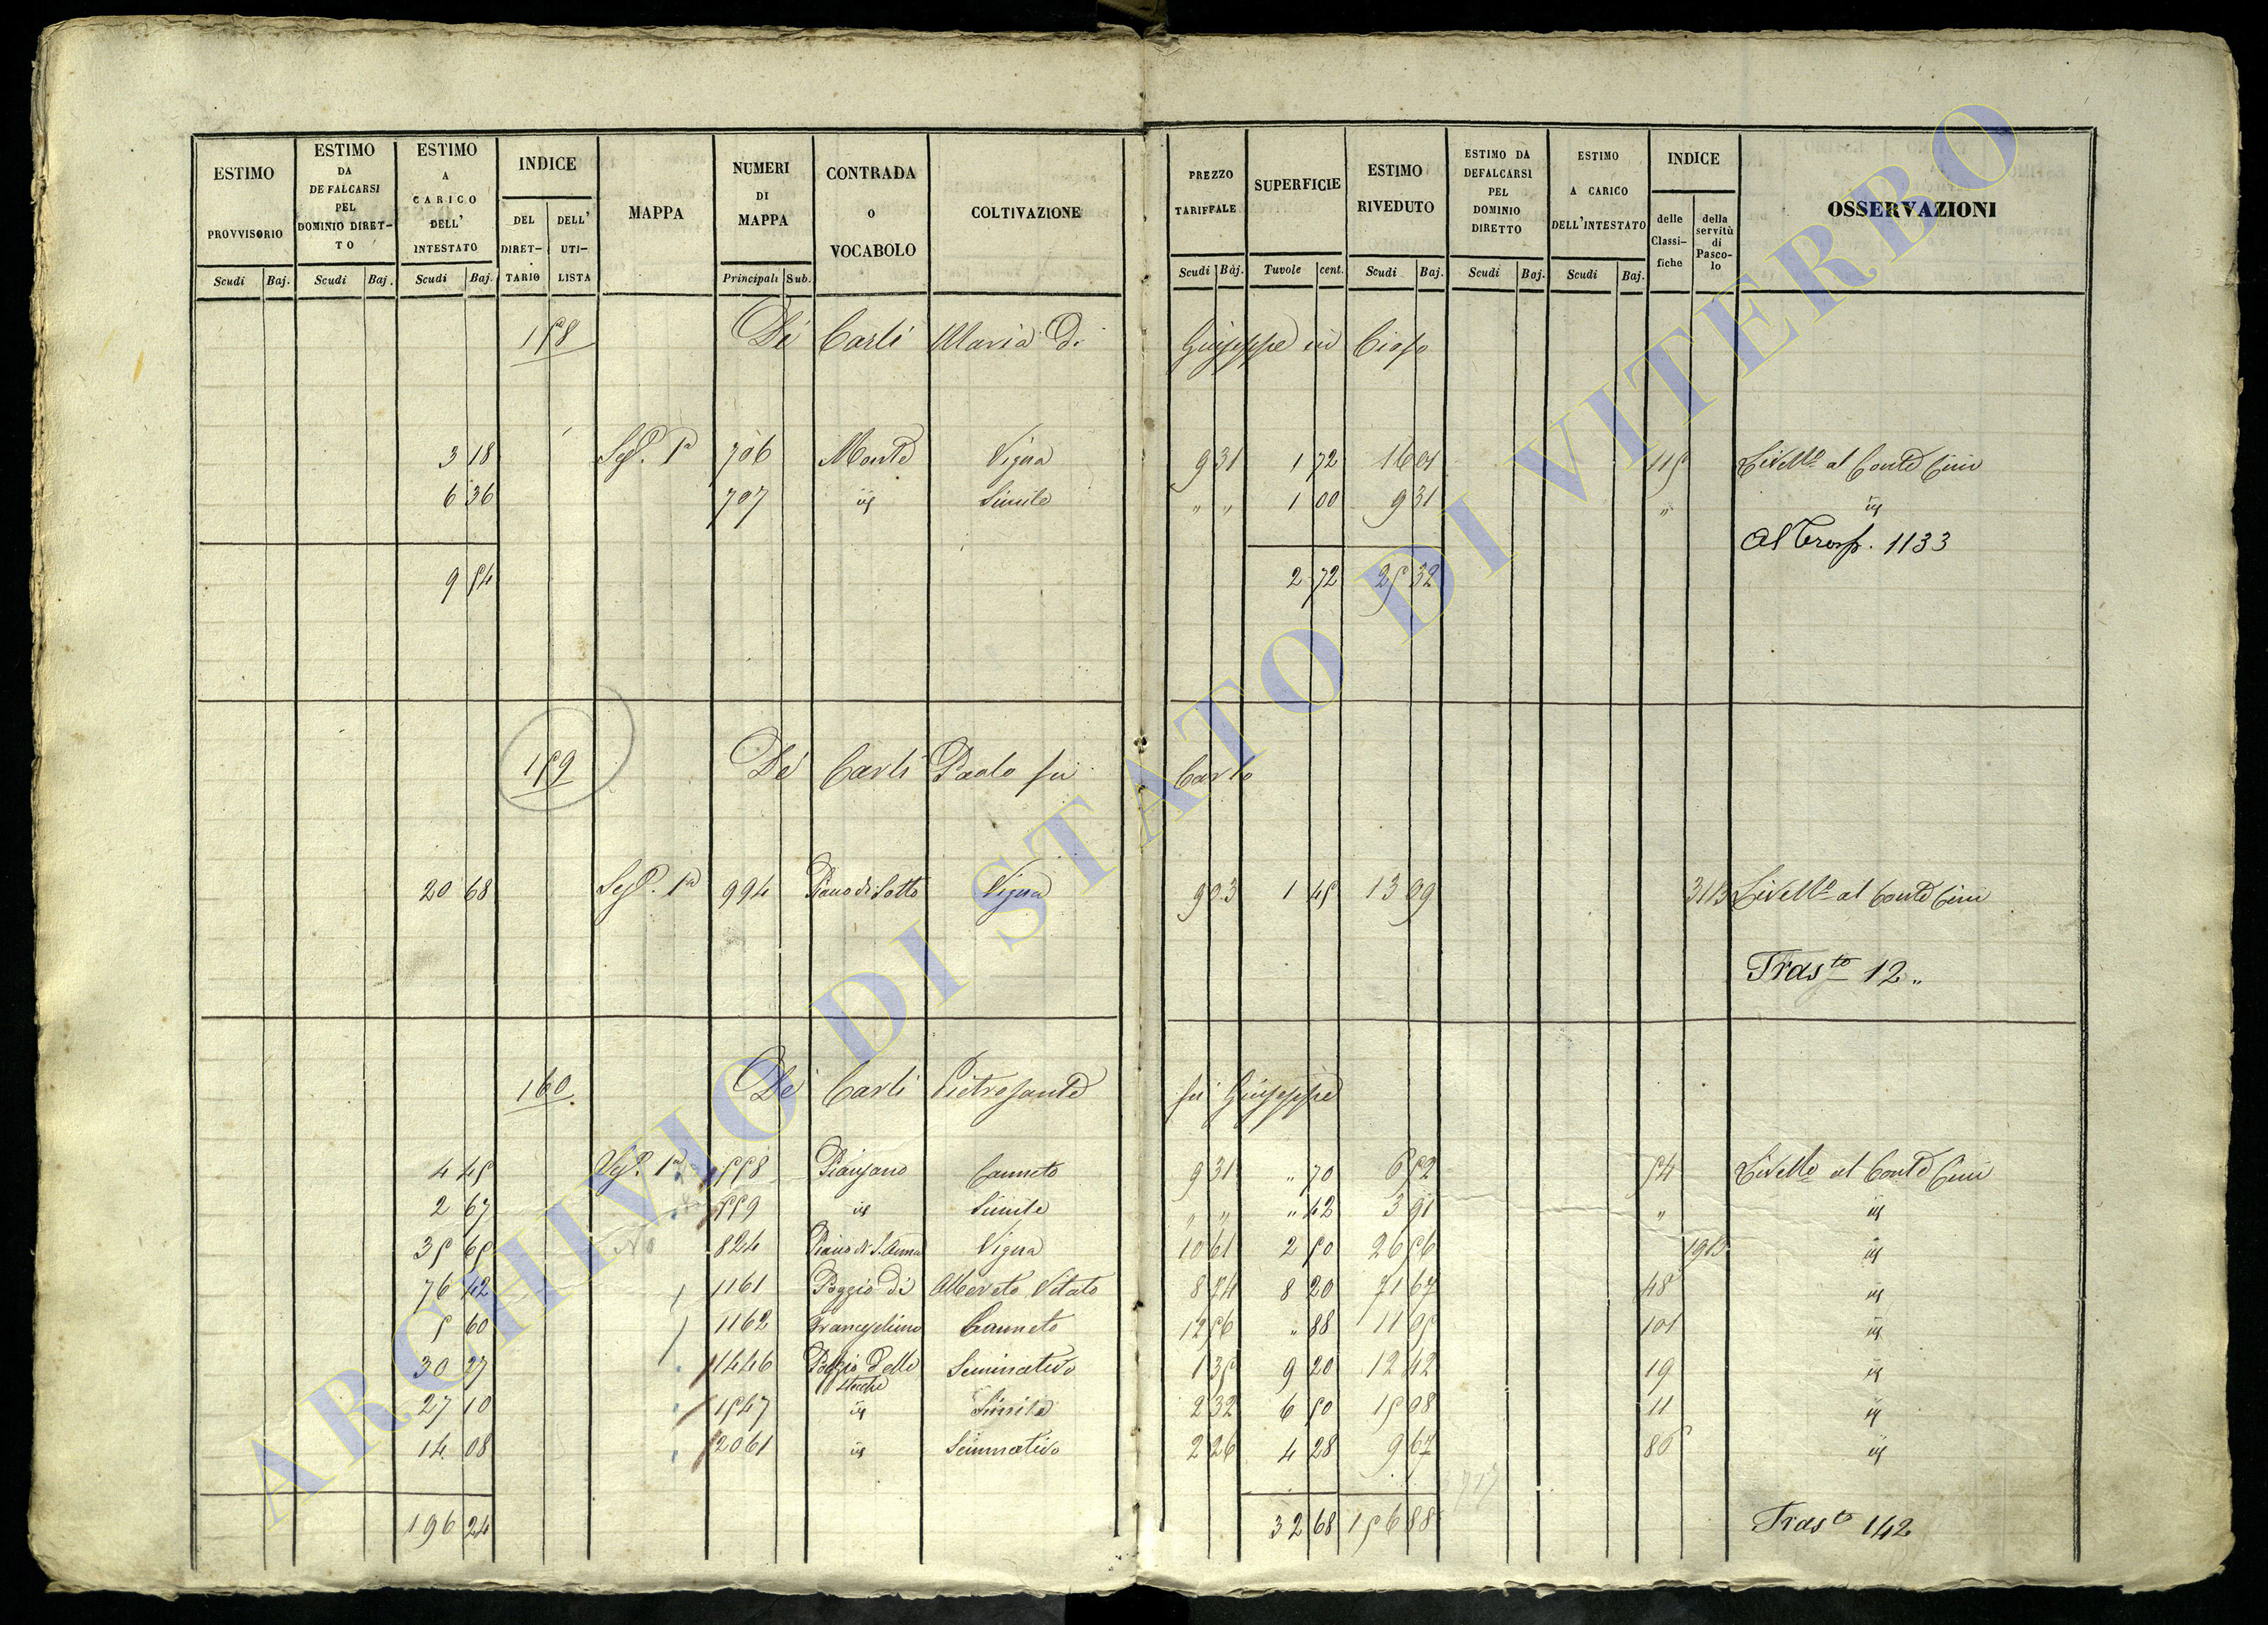 ESTIMO PROVVISORIO Scudi Baj.
ESTIMO DA DEFALCARSI PEL DOMINIO DIRETTO Scudi Baj.
ESTIMO A CARICO DELL' INTESTATO Scudi Baj.
INDICE DEL DIRETTARIO DELL' UTILISTA
MAPPA
NUMERI DI MAPPA Principali Sub.
CONTRADA O VOCABOLO
COLTIVAZIONE
PREZZO TARIFFALE Scudi Baj.
SUPERFICIE Tavole cent.
ESTIMO RIVEDUTO Scudi Baj.
ESTIMO DA DEFALCARSI PEL DOMINIO DIRETTO Scudi Baj.
ESTIMO A CARICO DELL'INTESTATO Scudi Baj.
INDICE delle Classifiche della servitù di Pascolo
OSSERVAZIONI
158 De Carli Maria di Giuseppe in
3 18 Sez. 1a 706 Monte Vigna 9 31 1 72 16 01 115 Livello al Conte Cini
6 36 707 " Simile " " 1 00 9 31 " "
Al Trasp. 1133
9 54 2 72 25 32
159 De Carli Paolo fu Carlo
20 68 Sez. 1a 994 Piano di Sotto Vigna 9 03 1 45 13 09 Livello al Conte Cini
Trasto 12 "
160 De Carli Pietrosante fu Giuseppe
4 45 Sez. 1a 558 Piansano Canneto 9 31 " 70 6 52 54 Livello al Conte Cini
2 67 559 " Simile " " " 42 3 91 " "
35 65 No 824 Piano di S. Anna Vigna 10 61 2 50 26 56 "
76 42 1161 Poggio di Alberato Vitato 8 74 8 20 71 67 48 "
5 60 1162 Franceschino Canneto 12 56 " 88 11 05 101 "
30 27 1446 Poggio delle Stecche Seminativo 1 35 9 20 12 42 19 "
27 10 1547 " Simile 2 32 6 50 15 08 11 "
14 08 2061 " Seminativo 2 26 4 28 9 67 "
196 24 32 68 156 88
Trasto 142
ARCHIVIO DI STATO DI VITERBO